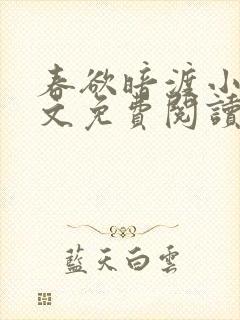 春欲暗渡小
文免費閱讀
藍天白雲